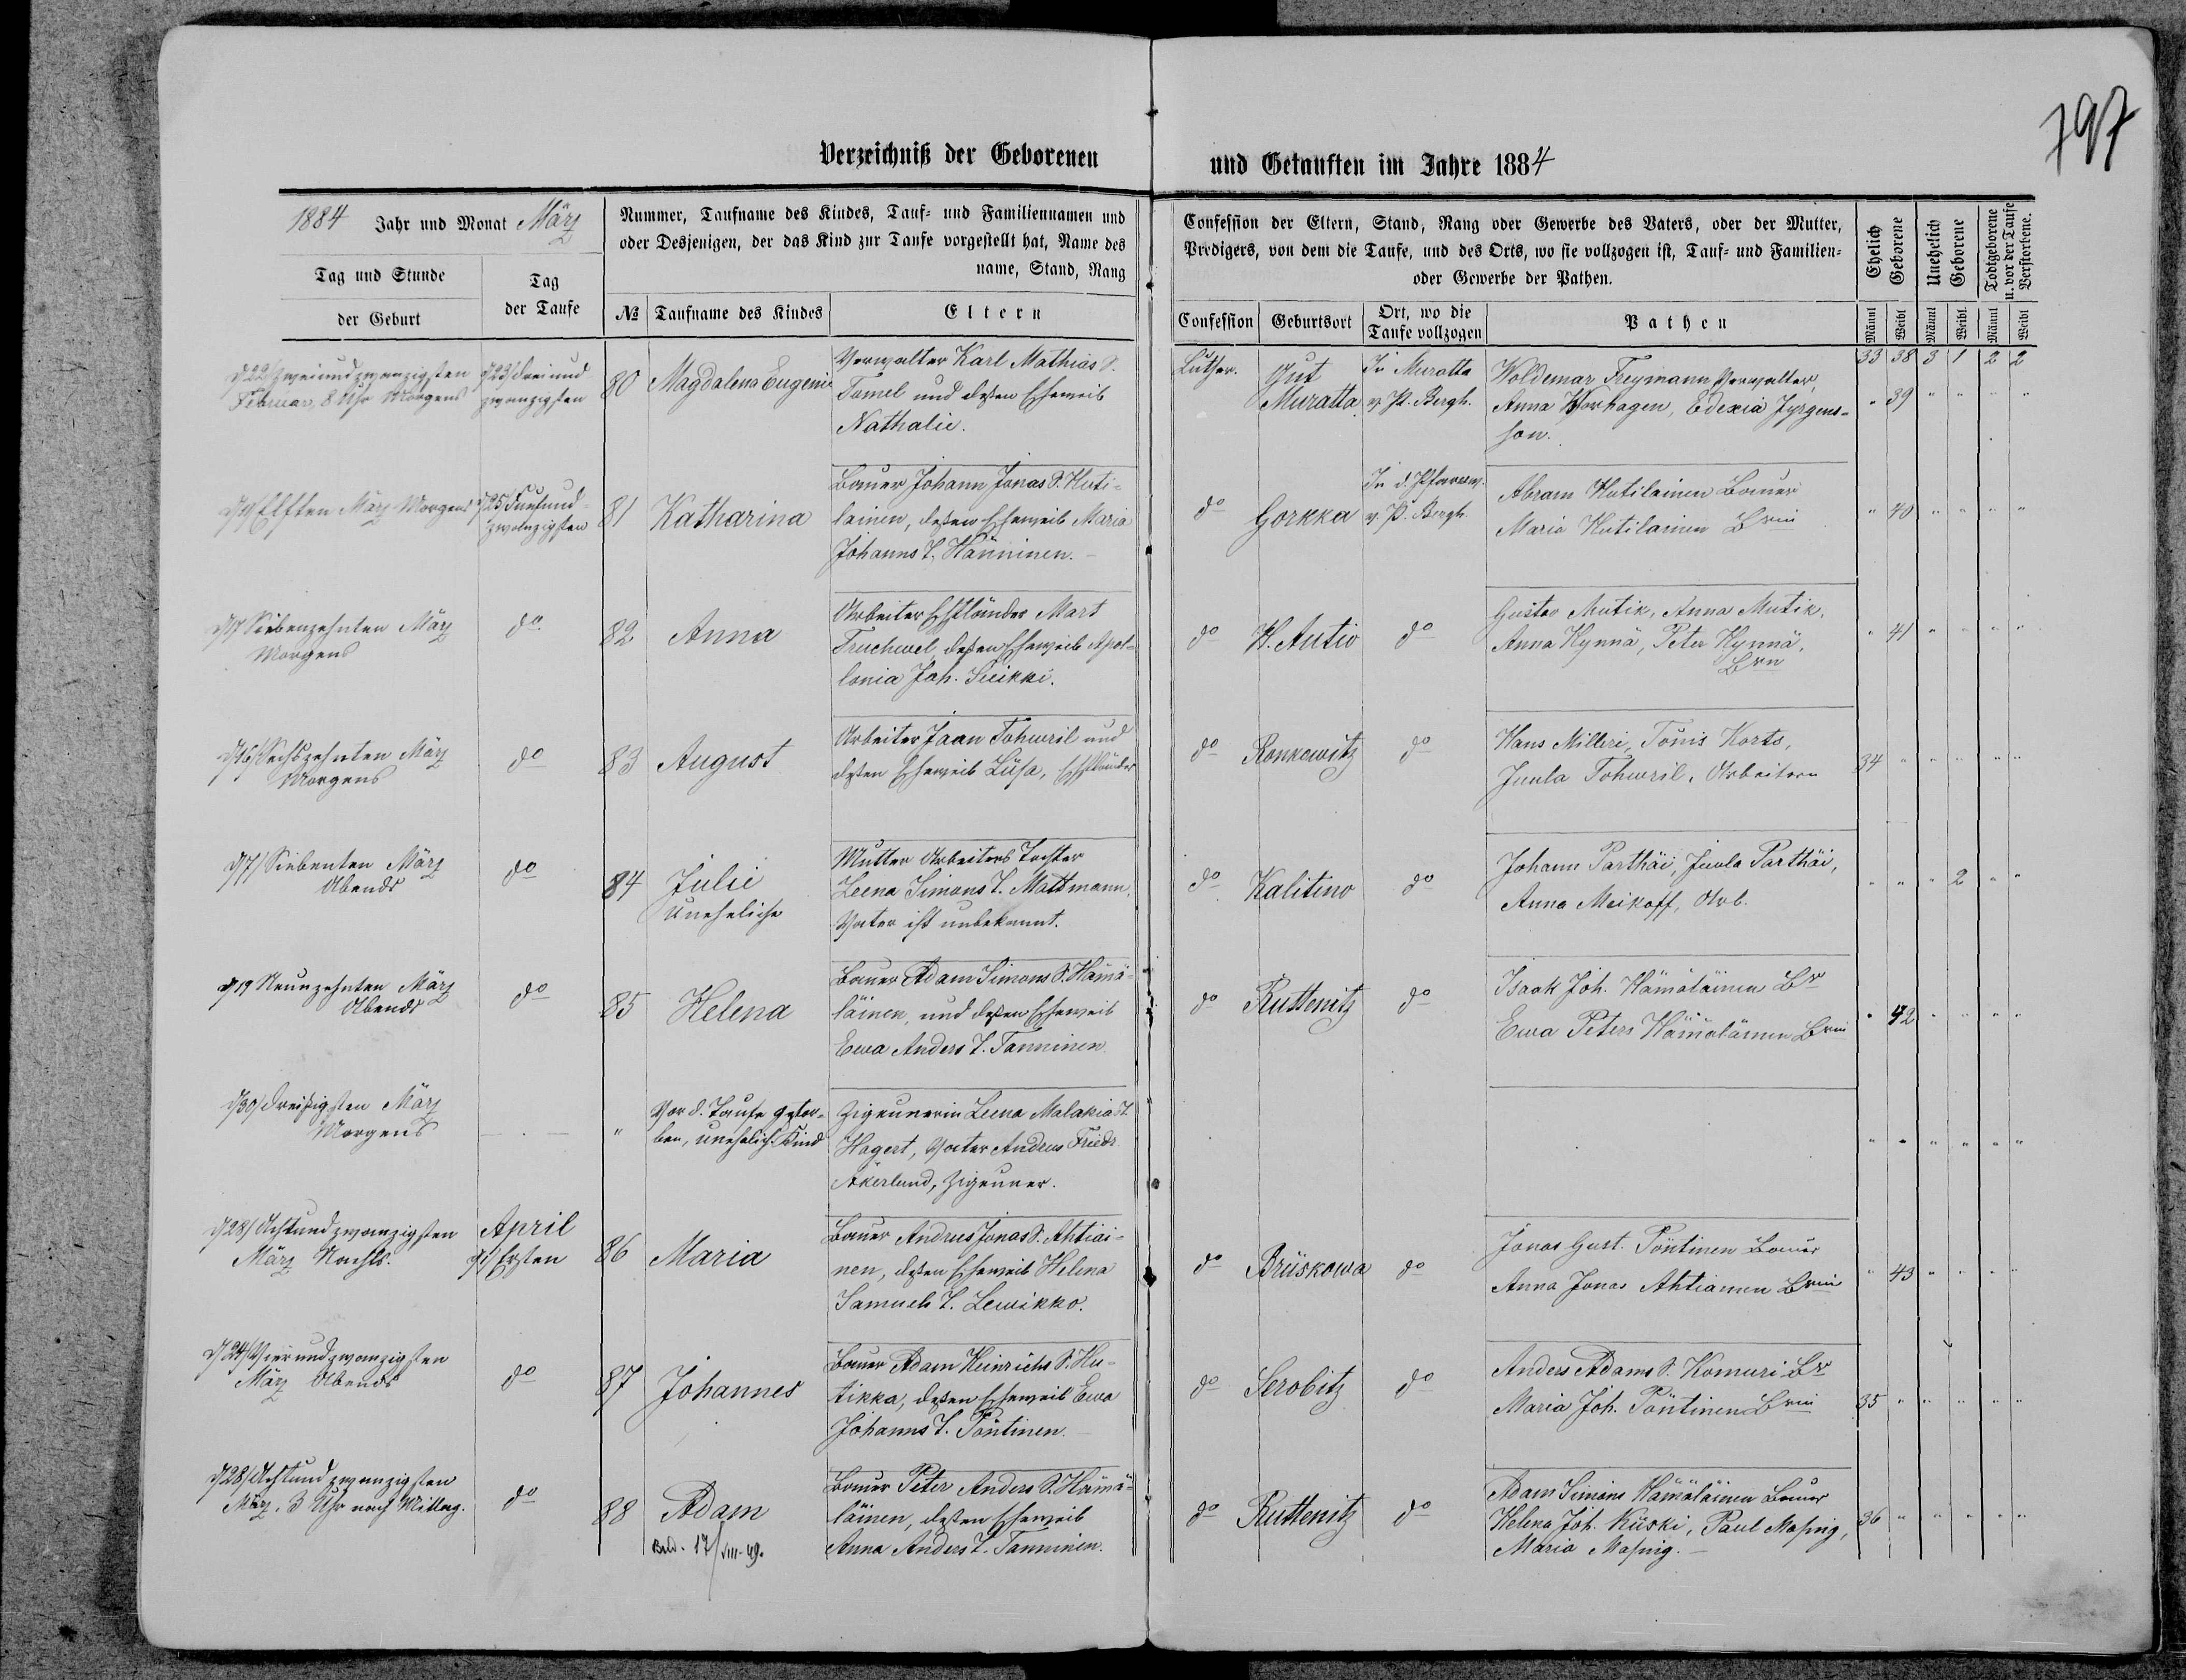 797
Verzeichniß der Geborenen und Getauften im Jahre 1884
1884 Jahr und Monat März
Nummer, Taufname des Kindes, Tauf- und Familiennamen und
oder Desjenigen, der das Kind zur Taufe vorgestellt hat, Name des
name, Stand, Rang
Tag und Stunde
der Geburt
Tag
der Taufe
№
Taufname des Kindes
Eltern
Confession der Eltern, Stand, Rang oder Gewerbe des Vaters, oder der Mutter,
Predigers, von dem die Taufe, und des Orts, wo sie vollzogen ist, Tauf- und Familien-
oder Gewerbe der Pathen.
Confession
Geburtsort
Ort, wo die
Taufe vollzogen
Pathen
Ehelich
Geborene
Unehelich
Geborene
Todtgeborene
u. vor der Taufe
Verstorbene.
Männl Weibl Männl Weibl. Männl Weibl
33 38 3 1 2 2
d/22/ Zweiundzwanzigsten
Februar, 8 Uhr Morgens
d/23/ Dreiund
zwanzigsten
80
Magdalena Eugenie
Verwalter Karl Mathias S.
Tamel und deßen Eheweib
Nathalie.
Luther.
Gut
Muratta
In Muratta
v. P. Bergh.
Woldemar Freymann Verwalter,
Anna Worhagen, Edexia Jyrgens-
son.
" 39 " " " "
d/11/ Elften März Morgens
d/25/ Fünfund-
zwanzigsten
81
Katharina
Bauer Johann Jonas S. Huti-
lainen, deßen Eheweib Maria
Johanns T. Hänninen.
do
Gorkka
In d. Pfarrw.
v. P. Bergh.
Abram Hutilainen Bauer
Maria Hutilainen Brin
" 40 " " " "
d/17 Siebenzehnten März
Morgens
do
82
Anna
Arbeiter Ehstländer Mart
Truchwel, deßen Eheweib Apol-
lonia Joh. Siikki.
do
H. Autio
do
Gustav Mutik, Anna Mutik,
Anna Kynnä, Peter Kynnä,
Brn
" 41 " " " "
d/16/ Sechszehnten März
Morgens
do
83
August
Arbeiter Jaan Tohwril und
deßen Eheweib Liisa, Ehstländer
do
Ronkowitz
do
Hans Milleri, Tönis Korts,
Juula Tohwril, Arbeitern
34 " " " " "
d/7/ Siebenten März
Abends
do
84
Julie
Uneheliche
Mutter Arbeiters Tochter
Leena Simons T. Mattmann.
Vater ist unbekannt.
do
Kalitino
do
Johann Parthäi, Juula Parthäi,
Anna Meikoff, Arb.
" " " 2 " "
d/19 Neunzehnten März
Abends
do
85
Helena
Bauer Adam Simons S. Hämä-
läinen, und deßen Eheweib
Ewa Anders T. Tanninen
do
Ruttenitz
do
Isaak Joh. Hämäläinen Br
Ewa Peters Hämäläinen Brin
" 42 " " " "
d/30/ Dreißigsten März
Morgens
"
Vor d. Taufe gestor-
ben, unehelich. Kind
Zigeunerin Leena Malakias T.
Hagert, Vater Andreas Friedr.
Åkerlund, Zigeuner.
" " " " " "
d/28/ Achtundzwanzigsten
März Nachts.
April
d/1/ Ersten
86
Maria
Bauer Andreas Jonas S. Ahtiai-
nen, deßen Eheweib Helena
Samuels T. Lewikko.
do
Briiskowa
do
Jonas Gust. Pöntinen Bauer
Anna Jonas Ahtiainen Brin
" 43 " " " "
d/24/ Vierundzwanzigsten
März Abends
do
87
Johannes
Bauer Adam Heinrichs S. Hu-
tikka, deßen Eheweib Ewa
Johanns T. Pöntinen.
do
Serobitz
do
Anders Adams S. Komuri Br
Maria Joh. Pöntinen Brin
35 " " " " "
d/28/ Achtundzwanzigsten
März. 3 Uhr nach Mittag.
do
88
Adam
17/VIII-49.
Bauer Peter Anders S. Hämä-
läinen, deßen Eheweib
Anna Anders T. Tanninen.
do
Ruttenitz
do
Adam Simons Hämäläinen Bauer
Helena Joh. Kiiski, Paul Maßnig,
Maria Maßnig.
36 " " " " "